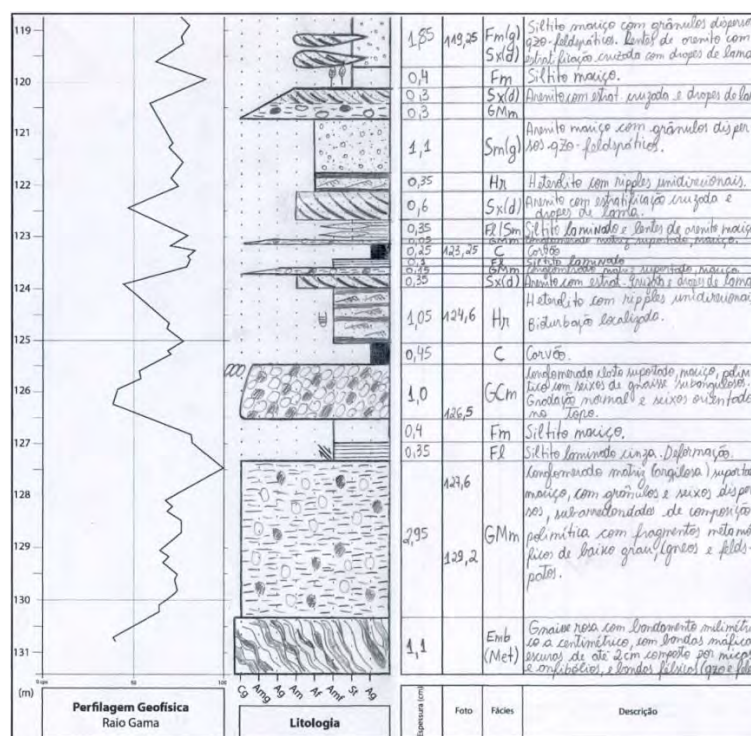 119
120
121
122
123
124
125
126
127
128
129
130
131
(m)
0 cps
100
Perfilagem Geofísica
Raio Gama
Cg Amg Ag Am Af Amf St Ag
Litologia
1,85 119,25 Fm(g) Sx(d) Siltito maciço com grânulos dispersos
qzo-feldspáticos. Lentes de arenito com
estratificação cruzada com drapes de lama
0,4 Fm Siltito maciço.
0,3 Sx(d) Arenito com estrat. cruzada e drapes de lama
0,3 GMm
1,1 Sm(g) Arenito maciço com grânulos disper
sos qzo-feldspáticos.
0,35 Hr Heterolito com ripples unidirecionais.
0,6 Sx(d) Arenito com estratificação cruzada e
drapes de lama.
0,35 Fl/Sm Siltito laminado e lentes de arenito maciço
GMm Conglomerado matriz suportado, maciço.
0,25 123,25 C Carvão
0,1 Fl Siltito laminado
0,15 GMm Conglomerado matriz suportado, maciço.
0,35 Sx(d) Arenito com estrat. cruzada e drapes de lama
1,05 124,6 Hr Heterolito com ripples unidirecionais
Bioturbação localizada.
0,45 C Carvão.
1,0 126,5 GCm Conglomerado clasto suportado, maciço, polimí
tico com seixos de gnaisse subangulosos.
Gradação normal e seixos orientados
no topo.
0,4 Fm Siltito maciço.
0,35 Fl Siltito laminado cinza. Deformação.
2,95 127,6 129,2 GMm Conglomerado matriz (argilosa) suportado
maciço, com grânulos e seixos disper
sos, subarredondados de composição
polimítica com fragmentos metamór
ficos de baixo grau, ígneos e felds-
patos.
1,1 Emb (Met) Gnaisse rosa com bandamento milimétri
co a centimétrico, com bandas máficas
escuras de até 2cm composto por micas
e anfibólios, e bandas félsicas (qzo e felds
Espessura (cm) Foto Fácies Descrição